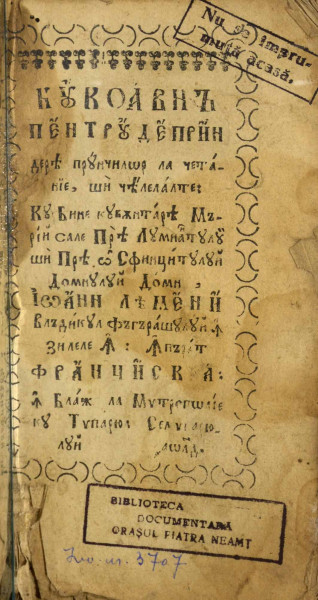 Nu se împru-
mută acasă.
КꙋКОАВНЪ
ПЕНТРꙋ ДЕПРИН
дерѣ прꙋнчилѡр ла чета́-
нїе, ши чѣлелалте:
Кꙋ Бине кꙋвѫнтарѣ Мъ-
рїй сале Прѣ Лꙋминатꙋлꙋй
ши Прѣ Сфинцитꙋлꙋй
Домнꙋлꙋй Домн,
ІѠАНН ЛЕМЕНЙ
Влъдикꙋл Фъгърашꙋлꙋй ꙟ
Зилеле ꙟ: ꙟпърат
ФРАНЧИСК А:
ꙟ Блаж ла Митрополїе
кꙋ Типарюл Семинарю-
лꙋй
BIBLIOTECA
DOCUMENTARĂ
ORAȘUL PIATRA NEAMȚ
Inv. nr. 3707